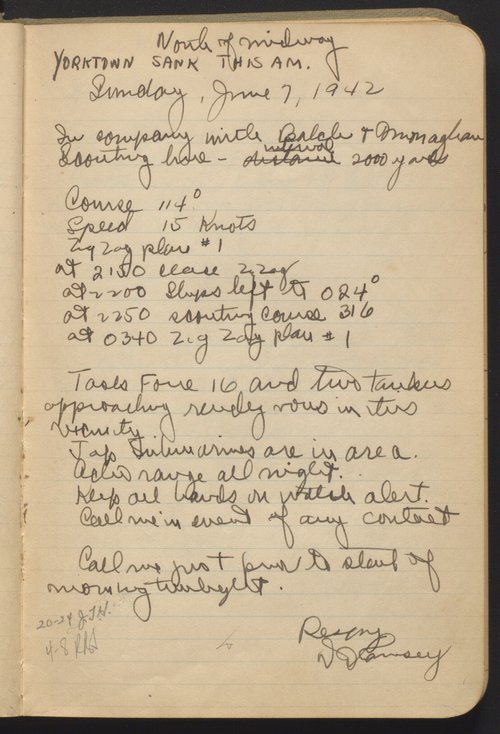 North of midway
YORKTOWN SANK THIS AM.
Sunday, June 7, 1942
In company with Balch & Monaghan
interval
Scouting line - distance 2000 yards
Course 114°
Speed 15 Knots
Zig Zag plan #1
at 2150 cease zigzag
at 2200 Ships left to 024°
at 2250 scouting course 316
at 0340 Zig Zag plan #1
Task Force 16 and two tankers
approaching rendezvous in this
vicinity.
Jap Submarines are in area.
Echo range all night.
Keep all hands on watch alert.
Call me in event of any contact
Call me just prior to start of
morning twilight.
20-24 J.T.H.
4-8
Respy
D D Ramsey